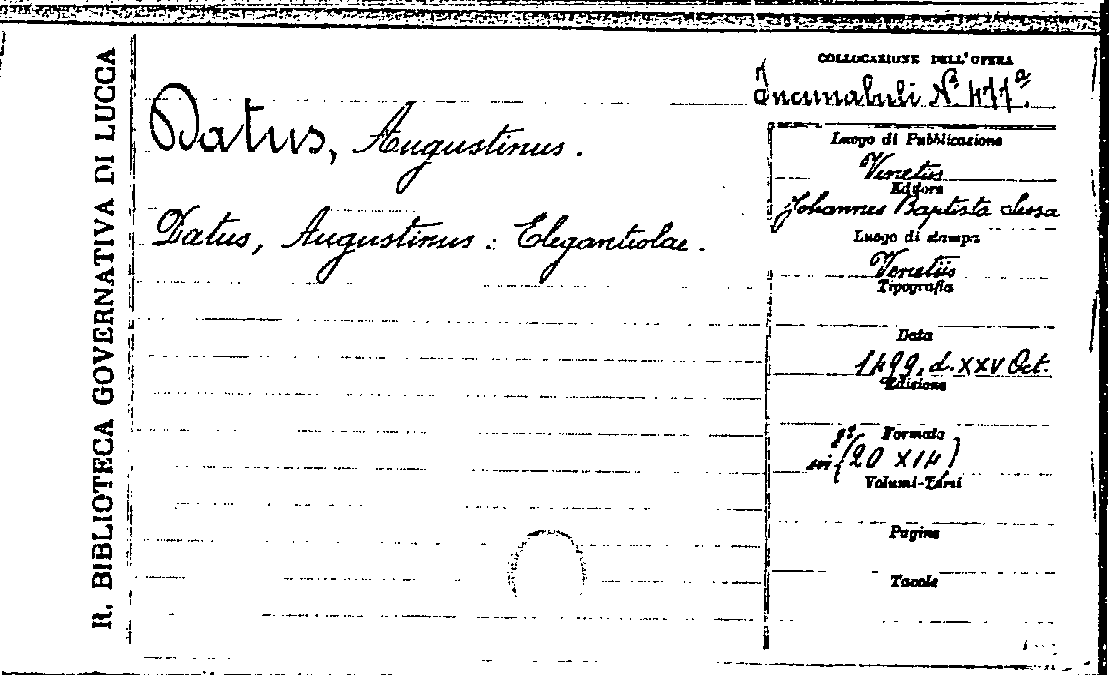 R. BIBLIOTECA GOVERNATIVA DI LUCCA
Datus, Augustinus.
Datus, Augustinus: Elegantiolae.
COLLOCAZIONE DELL'OPERA
Incunabuli N.º 477ª.
Luogo di Pubblicazione
Venetiis
Editore
Johannes Baptista Sessa
Luogo di stampa
Venetiis
Tipografia
Data
1499, d. XXV Oct.
Edizione
Formato
in (20 X 14)
Volumi-Tomi
Pagine
Tavole